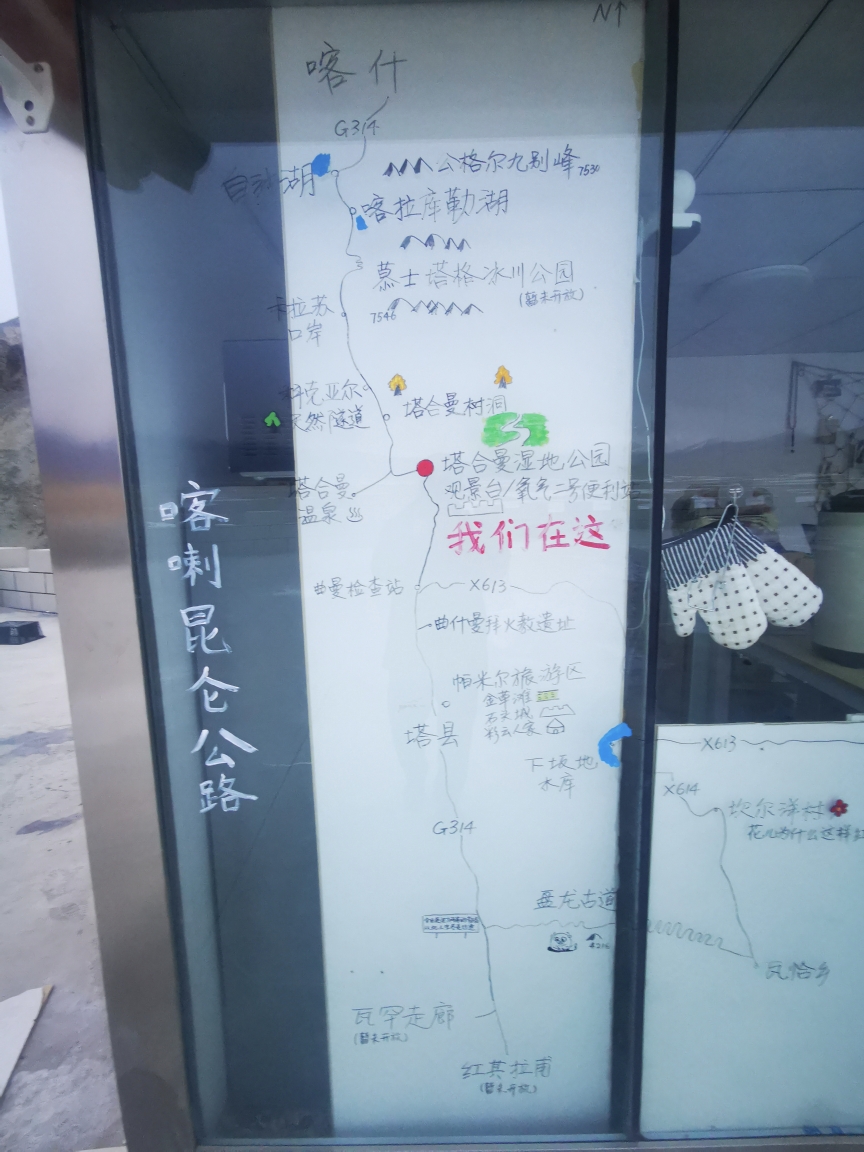 N↑
喀什
G314
白沙湖
公格尔九别峰 7530
喀拉库勒湖
慕士塔格冰川公园
(暂未开放)
7546
卡拉苏
口岸
科克亚尔
天然隧道
塔合曼树洞
塔合曼湿地公园
观景台/氧气二号便利站
我们在这
塔合曼
温泉
曲曼检查站
X613
曲什曼拜火教遗址
帕米尔旅游区
金草滩
石头城
彩云人家
塔县
下坂地
水库
G314
盘龙古道
4216
瓦罕走廊
(暂未开放)
红其拉甫
(暂未开放)
喀喇昆仑公路
X613
X614
坎尔洋村
花儿为什么这样红
瓦恰乡